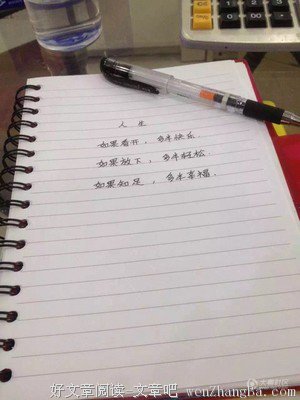 人生
如果看开，多半快乐.
如果放下，多半轻松.
如果知足，多半幸福.
好文章阅读-文章吧 wenzhangba.com